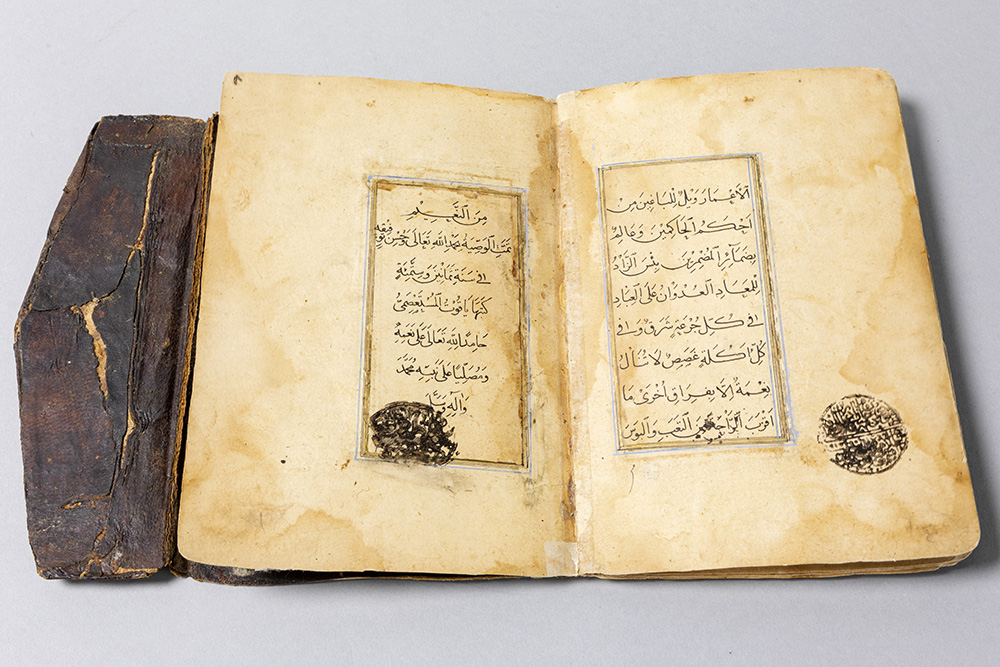 الأعمار ويل للباغين من
احكم الحاكمين وعالم
بضمائر المضمرين بئس الزاد
للمعاد العدوان على العباد
في كل جرعة شرق وفي
كل اكلة غصص لا تنال
نعمة إلا بفراق أخرى ما
اقرب الراحة من التعب والبؤس
من النعيم
تمت الوصية بحمد الله تعالى وحسن توفيقه
في سنة ثمانين وستمئة
كتبها ياقوت المستعصمي
حامدا لله تعالى على نعمه
ومصليا على نبيه محمد
وآله